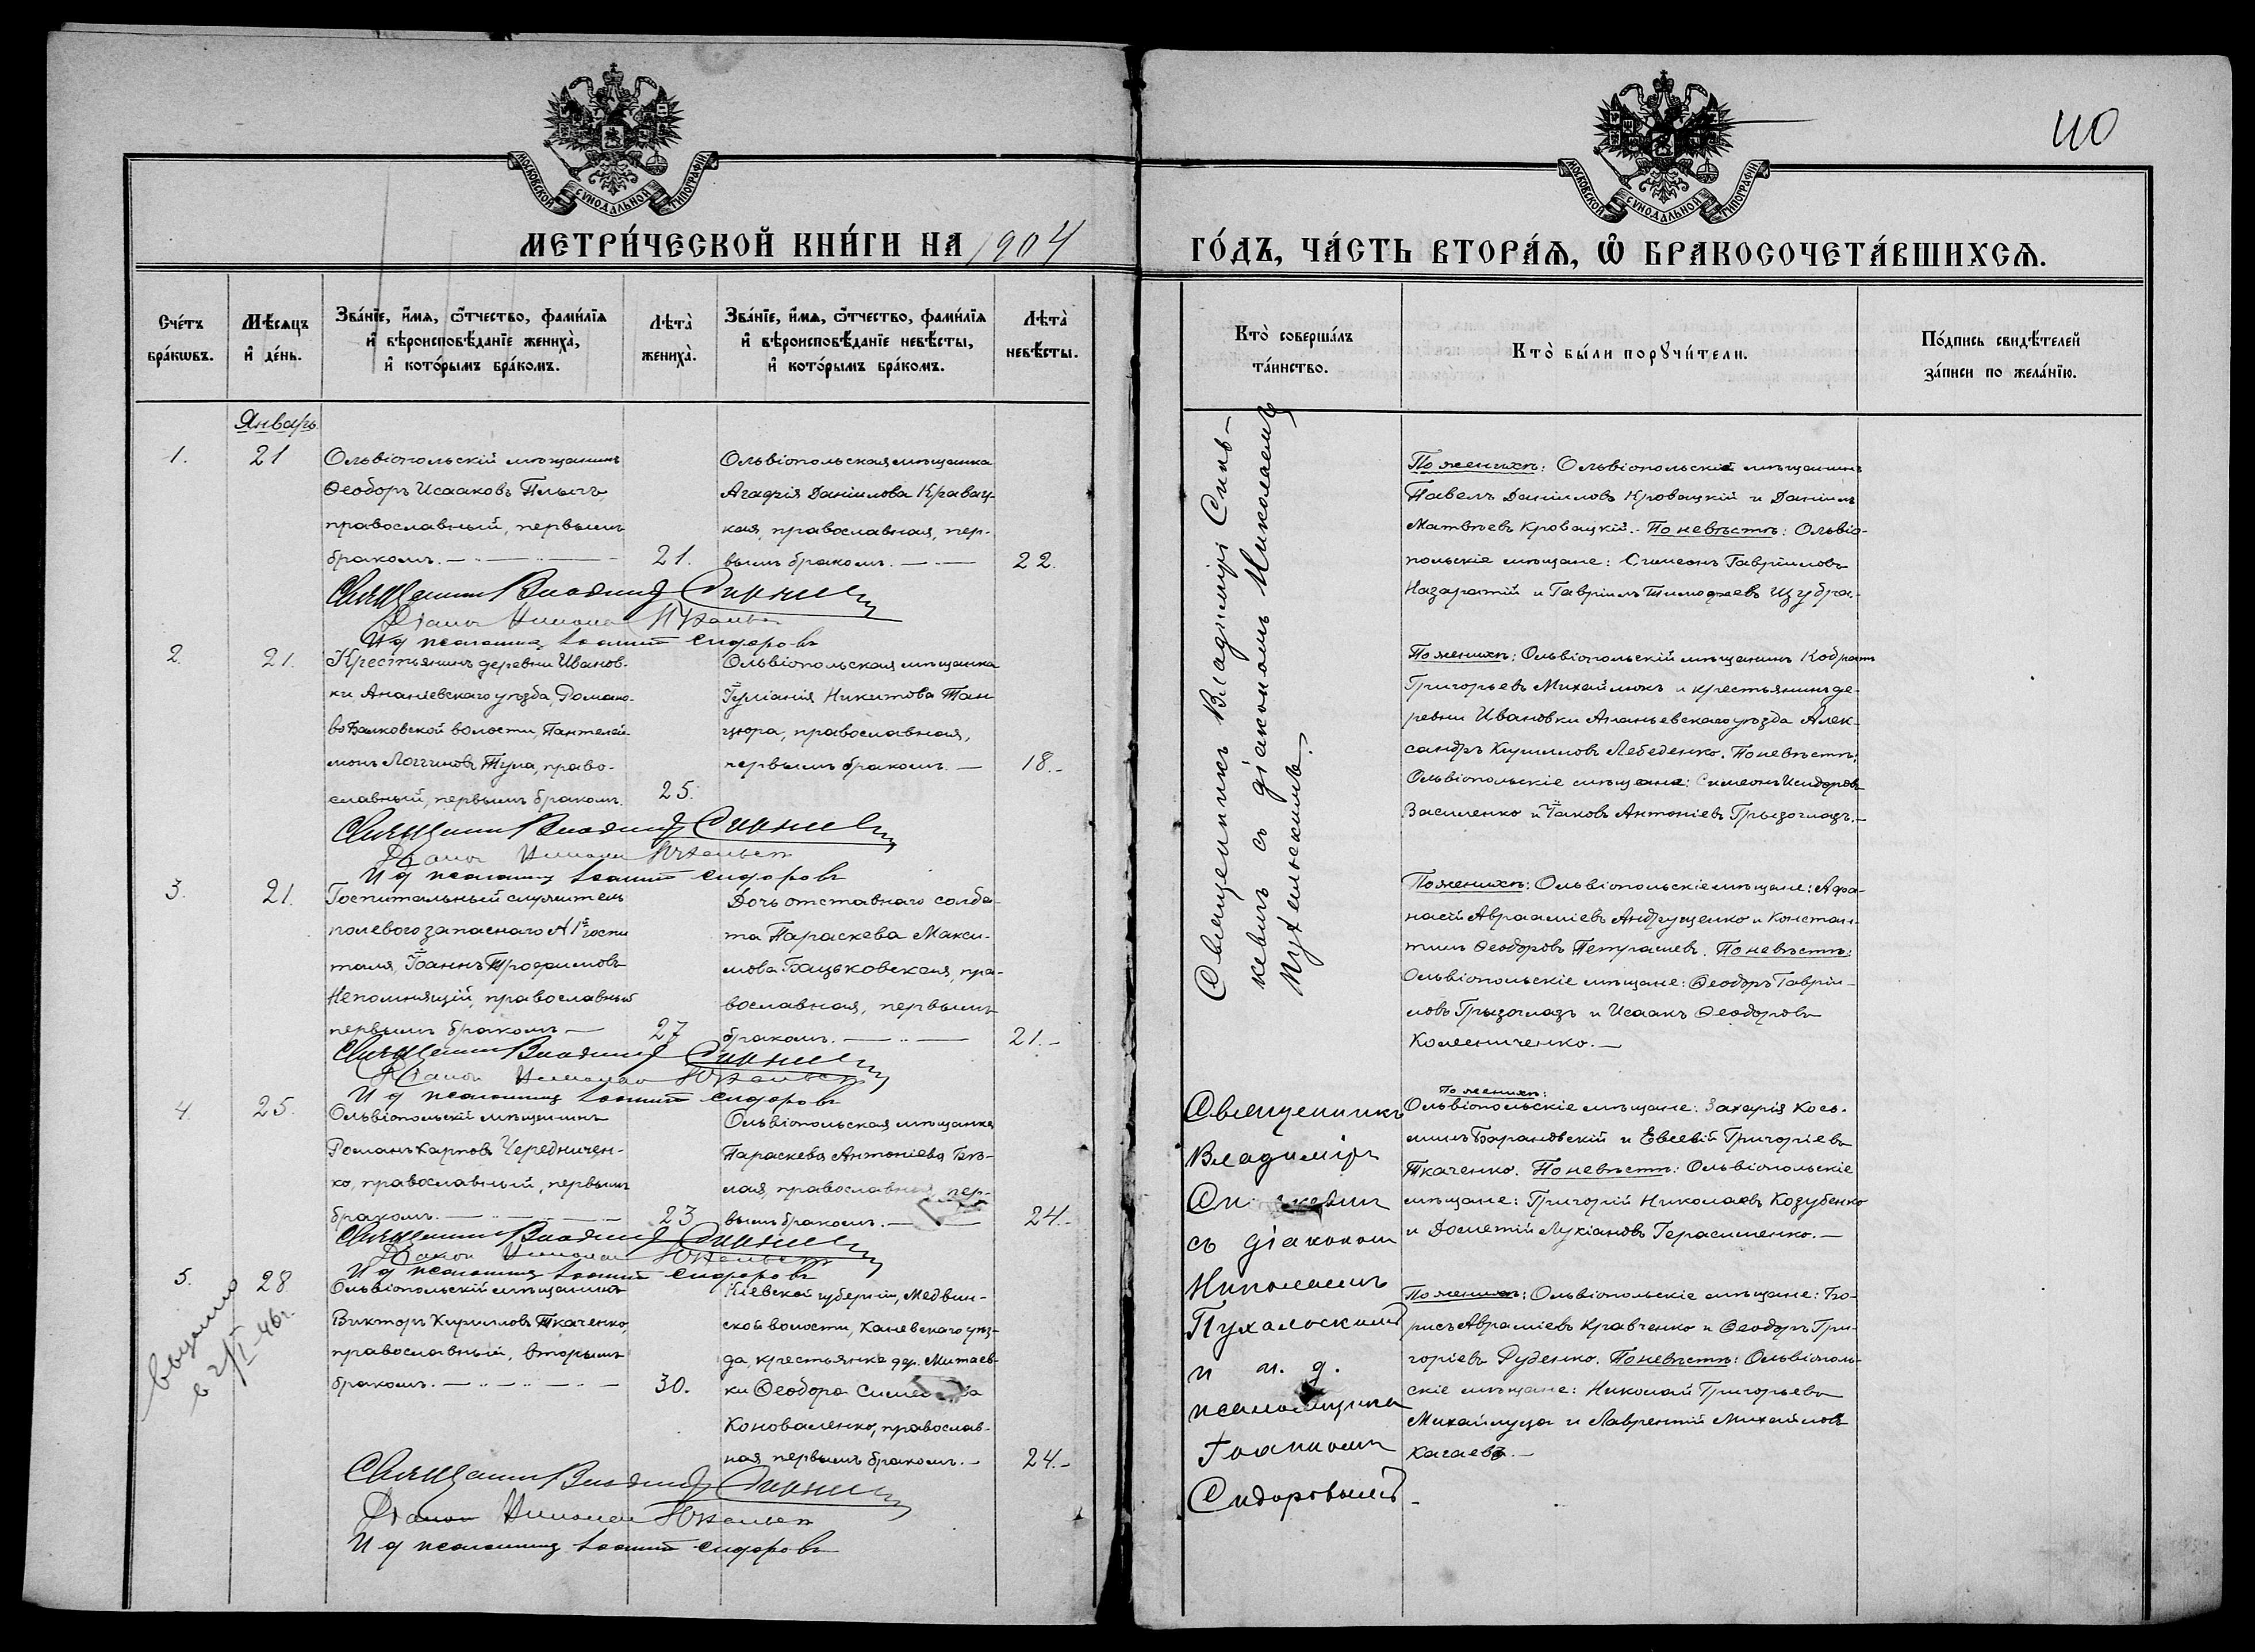 МОСКОВСКОЙ СѴНОДАЛЬНОЙ ТИПОГРАФІИ.
МЕТРИ́ЧЕСКОЙ КНИ́ГИ НА 1904
Сче́тъ бра́кωвъ.
Мѣ́сяцъ и҆ де́нь.
Зва́нїе, и҆́мя, ѻ҆́тчество, фами́лїя
и҆ вѣроисповѣ́данїе жениха̀,
и҆ кото́рымъ бра́комъ.
Лѣта̀ жениха̀.
Зва́нїе, и҆́мя, ѻ҆́тчество, фами́лїя
и҆ вѣроисповѣ́данїе невѣ́сты,
и҆ кото́рымъ бра́комъ.
Лѣта̀ невѣ́сты.
Январь.
1.
21
Ольвіопольскій мѣщанинъ
Ѳеодоръ Исааковъ
православный, первымъ
бракомъ.
21.
Ольвіопольская мѣщанка
Агафія Даніилова Кравац-
кая, православная, пер-
вымъ бракомъ.
22.
Священникъ Владимір
Діаконъ Николай
И д псаломщ Іоаннъ Сидоровъ
2.
21.
Крестьянинъ деревни Иванов-
ки Ананіевскаго уѣзда, Романо-
во Балковской волости, Пантелей-
монъ Логгиновъ Тула, право-
славный, первымъ бракомъ.
25.
Ольвіопольская мѣщанка
Іуліанія Никитова Тан
цюра, православная,
первымъ бракомъ. —
18.-
Священникъ Владимір
Діаконъ Николай
И д псаломщ Іоаннъ Сидоровъ
3.
21.
Госпитальный служитель
полеваго запаснаго №1го госпи
таля, Іоаннъ Трофимовъ
Непомнящій, православный
первымъ бракомъ —
27
Дочь отставнаго солда-
та Параскева Макси-
мова Бацьковская, пра-
вославная, первымъ
бракомъ.
21.-
Священникъ Владимір
Діаконъ Николай
И д псаломщ Іоаннъ Сидоровъ
4.
25.
Ольвіопольскій мѣщанинъ
Романъ Карповъ Чередничен-
ко, православный, первымъ
бракомъ.
23
Ольвіопольская мѣщанка
Параскева Антоніева Бѣ-
лая, православная, пер-
вымъ бракомъ.
24.-
Священникъ Владимір
Діаконъ Николай
И д псаломщ Іоаннъ Сидоровъ
5.
28
Ольвіопольскій мѣщанинъ
Викторъ Кирилловъ Ткаченко,
православный, вторымъ
бракомъ.
30.
Кіевской губерніи, Медвин-
ской волости, Каневскаго уѣз-
да, крестьянка дер. Митаев-
ки Ѳеодора
Коноваленко, православ-
ная первымъ бракомъ. -
24.-
Священникъ Владимір
Діаконъ Николай
И д псаломщ Іоаннъ Сидоровъ
40
МОСКОВСКОЙ СѴНОДАЛЬНОЙ ТИПОГРАФІИ.
ГО́ДЪ, ЧА́СТЬ ВТОРА́Я, Ѡ҆ БРАКОСОЧЕТА́ВШИХСЯ.
Кто̀ соверша́лъ
та́инство.
Кто̀ бы́ли порꙋчи́тели.
По́дпись свидѣ́телей
за́писи по жела́нїю.
Священникъ Владиміръ Синь-
кевичъ съ діакономъ Николаемъ
Пухальскимъ.
По женихѣ: Ольвіопольскій мѣщанинъ
Павелъ Даніиловъ Кровацкій и Даніилъ
Матвѣевъ Кровацкій. По невѣстѣ: Ольвіо-
польскіе мѣщане: Симеонъ Гавріиловъ
Назаратій и Гавріилъ Тимофеевъ Цзубра.
По женихѣ: Ольвіопольскій мѣщанинъ Кодратъ
Григорьевъ Михайлюкъ и крестьянинъ де-
ревни Ивановки Ананьевскаго уѣзда Алек-
сандръ Кирилловъ Лебеденко. По невѣстѣ:
Ольвіопольскіе мѣщане: Симеонъ Исидоровъ
Василенко и Іаковъ Антоніевъ Грызоглазъ.-
По женихѣ: Ольвіопольскіе мѣщане: Афа-
насій Авраамiевъ Андрущенко и Констан-
тинъ Ѳеодоровъ Петрашевъ. По невѣстѣ:
Ольвіопольскіе мѣщане: Ѳеодоръ Гавріи-
ловъ Грызоглазъ и Исаакъ Ѳеодоровъ
Колесниченко. —
Священникъ
Владиміръ
съ діакономъ
Николаемъ
Пухальскимъ
и и. д.
псаломщика
Іоанномъ
Сидоровымъ -
По женихѣ:
Ольвіопольскіе мѣщане: Захарія Козь-
минъ Барановскій и Евсевій Григоріевъ
Ткаченко. По невѣстѣ: Ольвіопольскіе
мѣщане: Григорій Николаевъ Козубенко
и Дометій Лукіановъ Герасименко. —
По женихѣ: Ольвіопольскіе мѣщане: Бо-
рисъ Авраміевъ Кравченко и Ѳеодоръ Гри-
горіевъ Руденко. По невѣстѣ: Ольвіополь-
скіе мѣщане: Николай Григорьевъ
Михайлуца и Лаврентій Михайловъ
Качаевъ. —